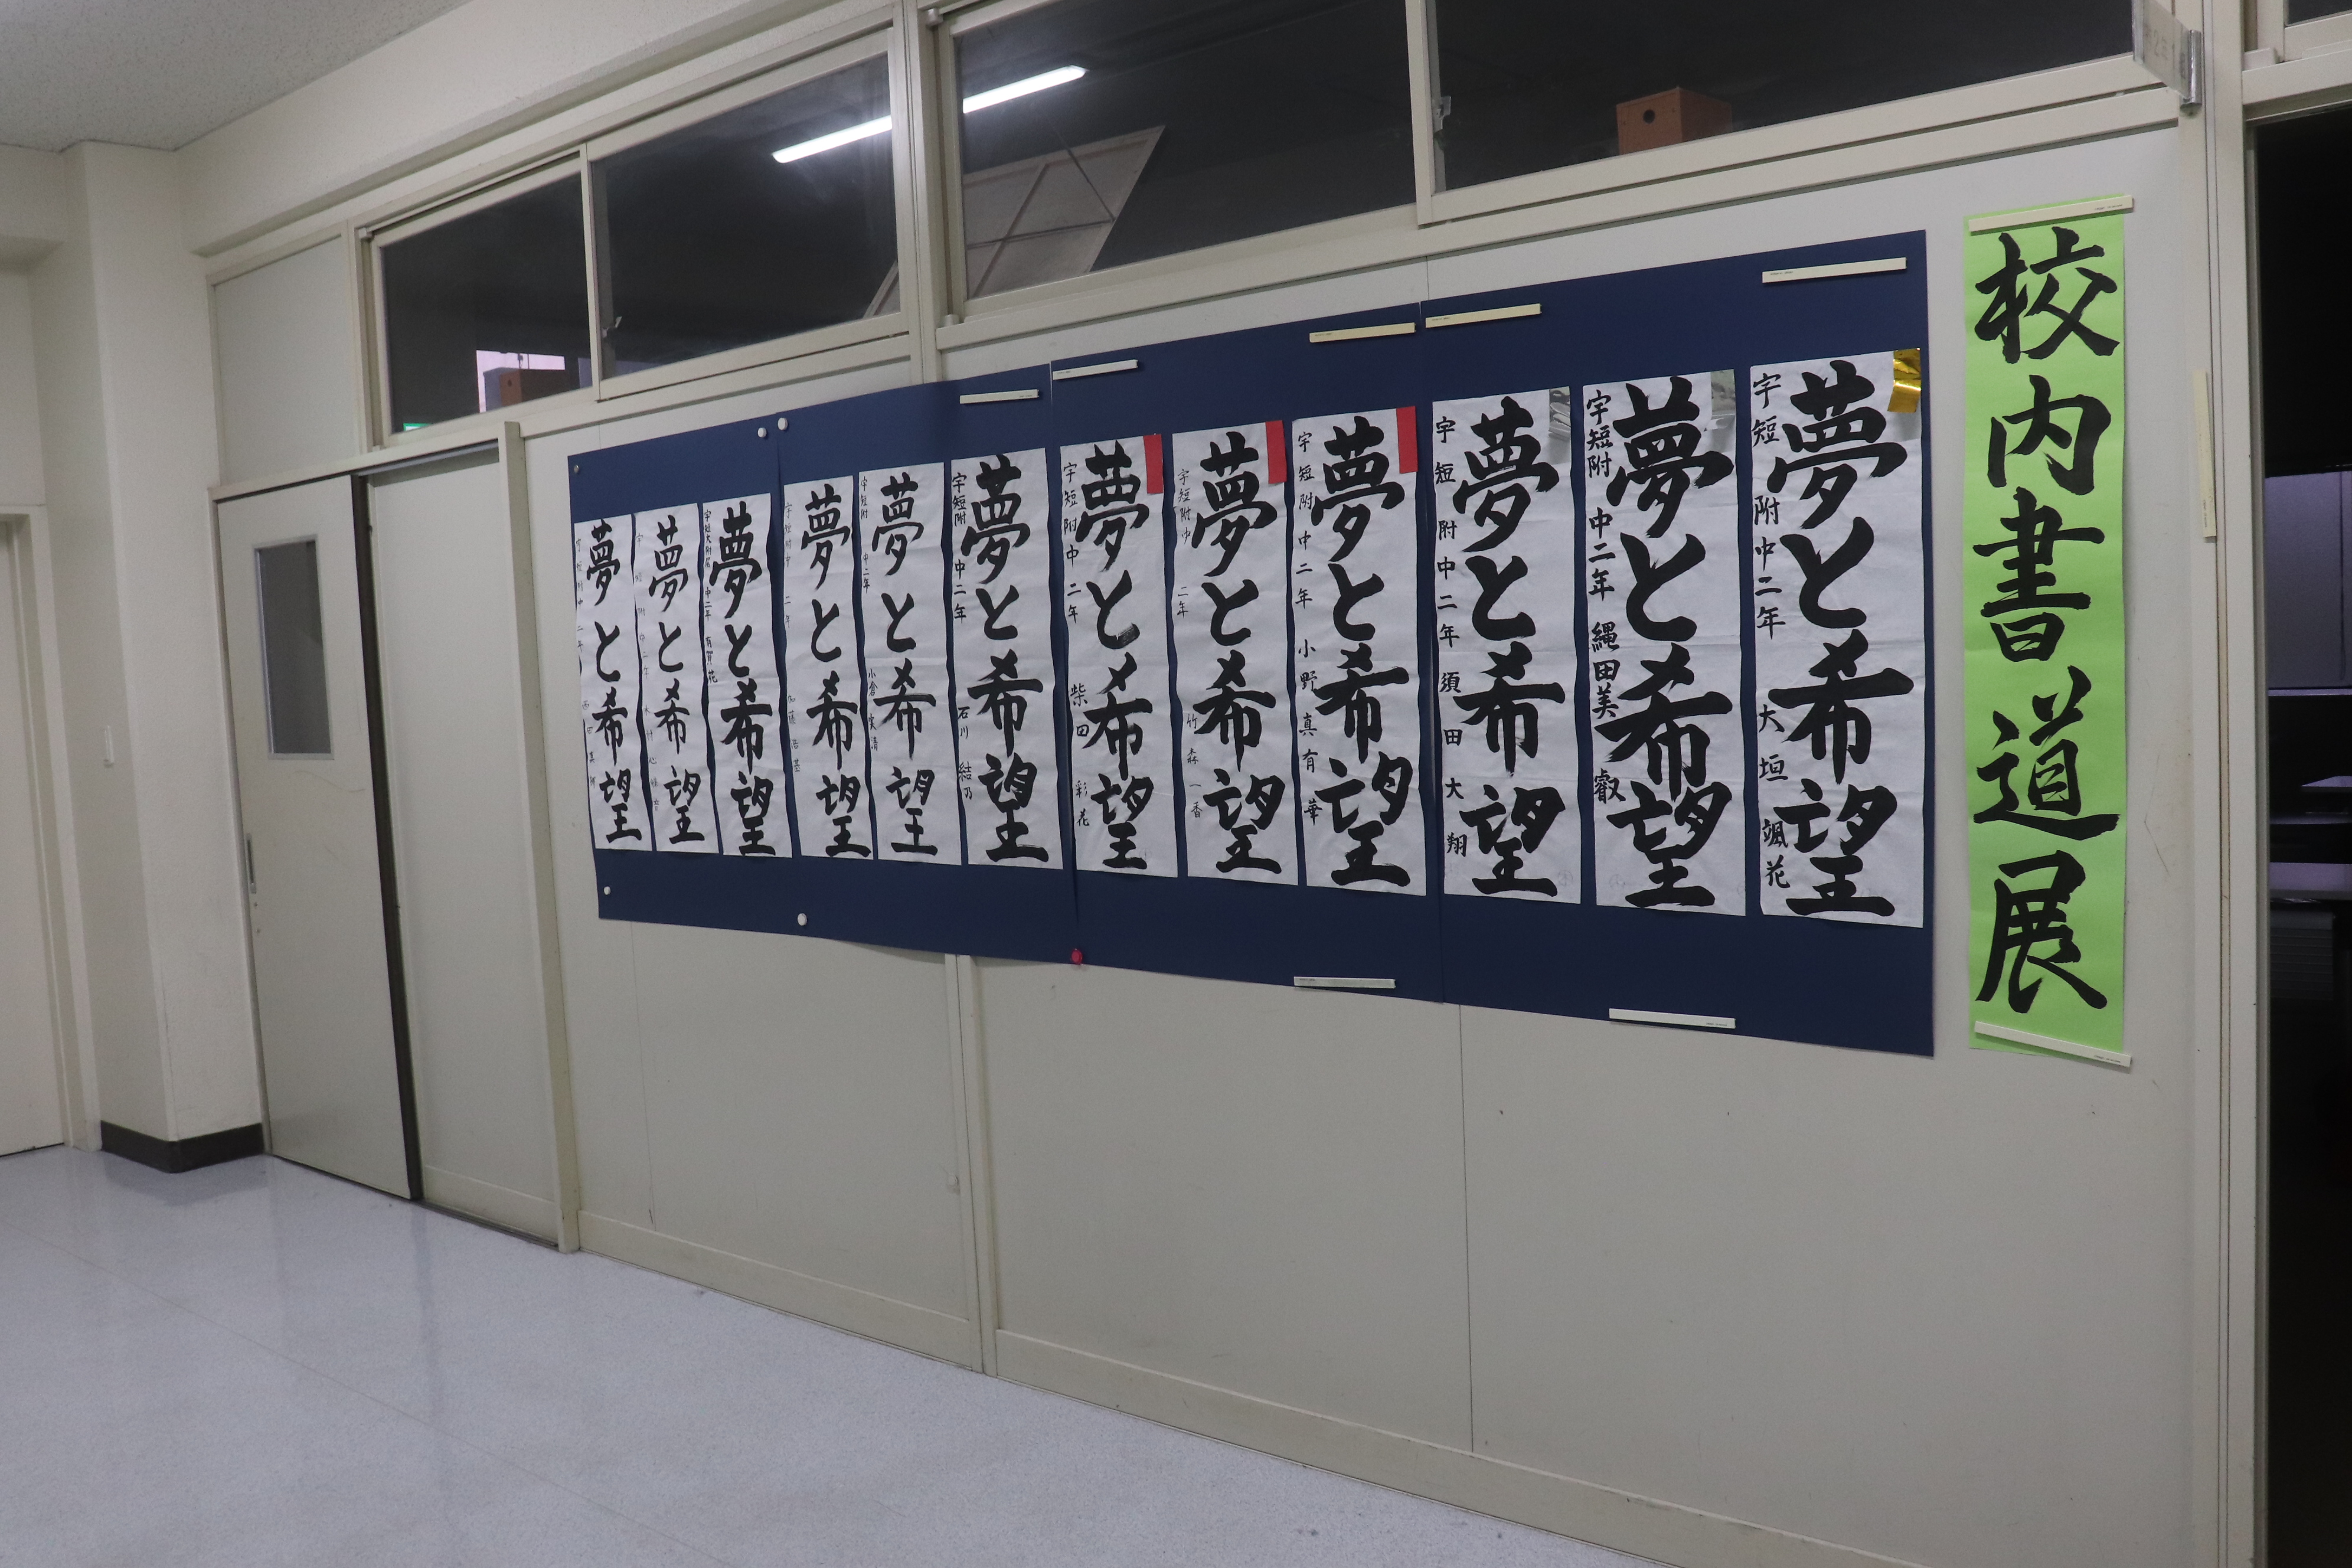 校内書道展
夢と希望
宇短附中二年 大垣 颯花
夢と希望
宇短附中二年 縄田美 叡
夢と希望
宇短附中二年 須田 大翔
夢と希望
宇短附中二年 小野 真有華
夢と希望
宇短附中 二年 竹森 一香
夢と希望
宇短附中二年 柴田 彩花
夢と希望
宇短附中二年 石川 結乃
夢と希望
宇短附 中二年 小倉
夢と希望
二年 加藤
夢と希望
宇短大附属中二年 有賀 花
夢と希望
夢と希望